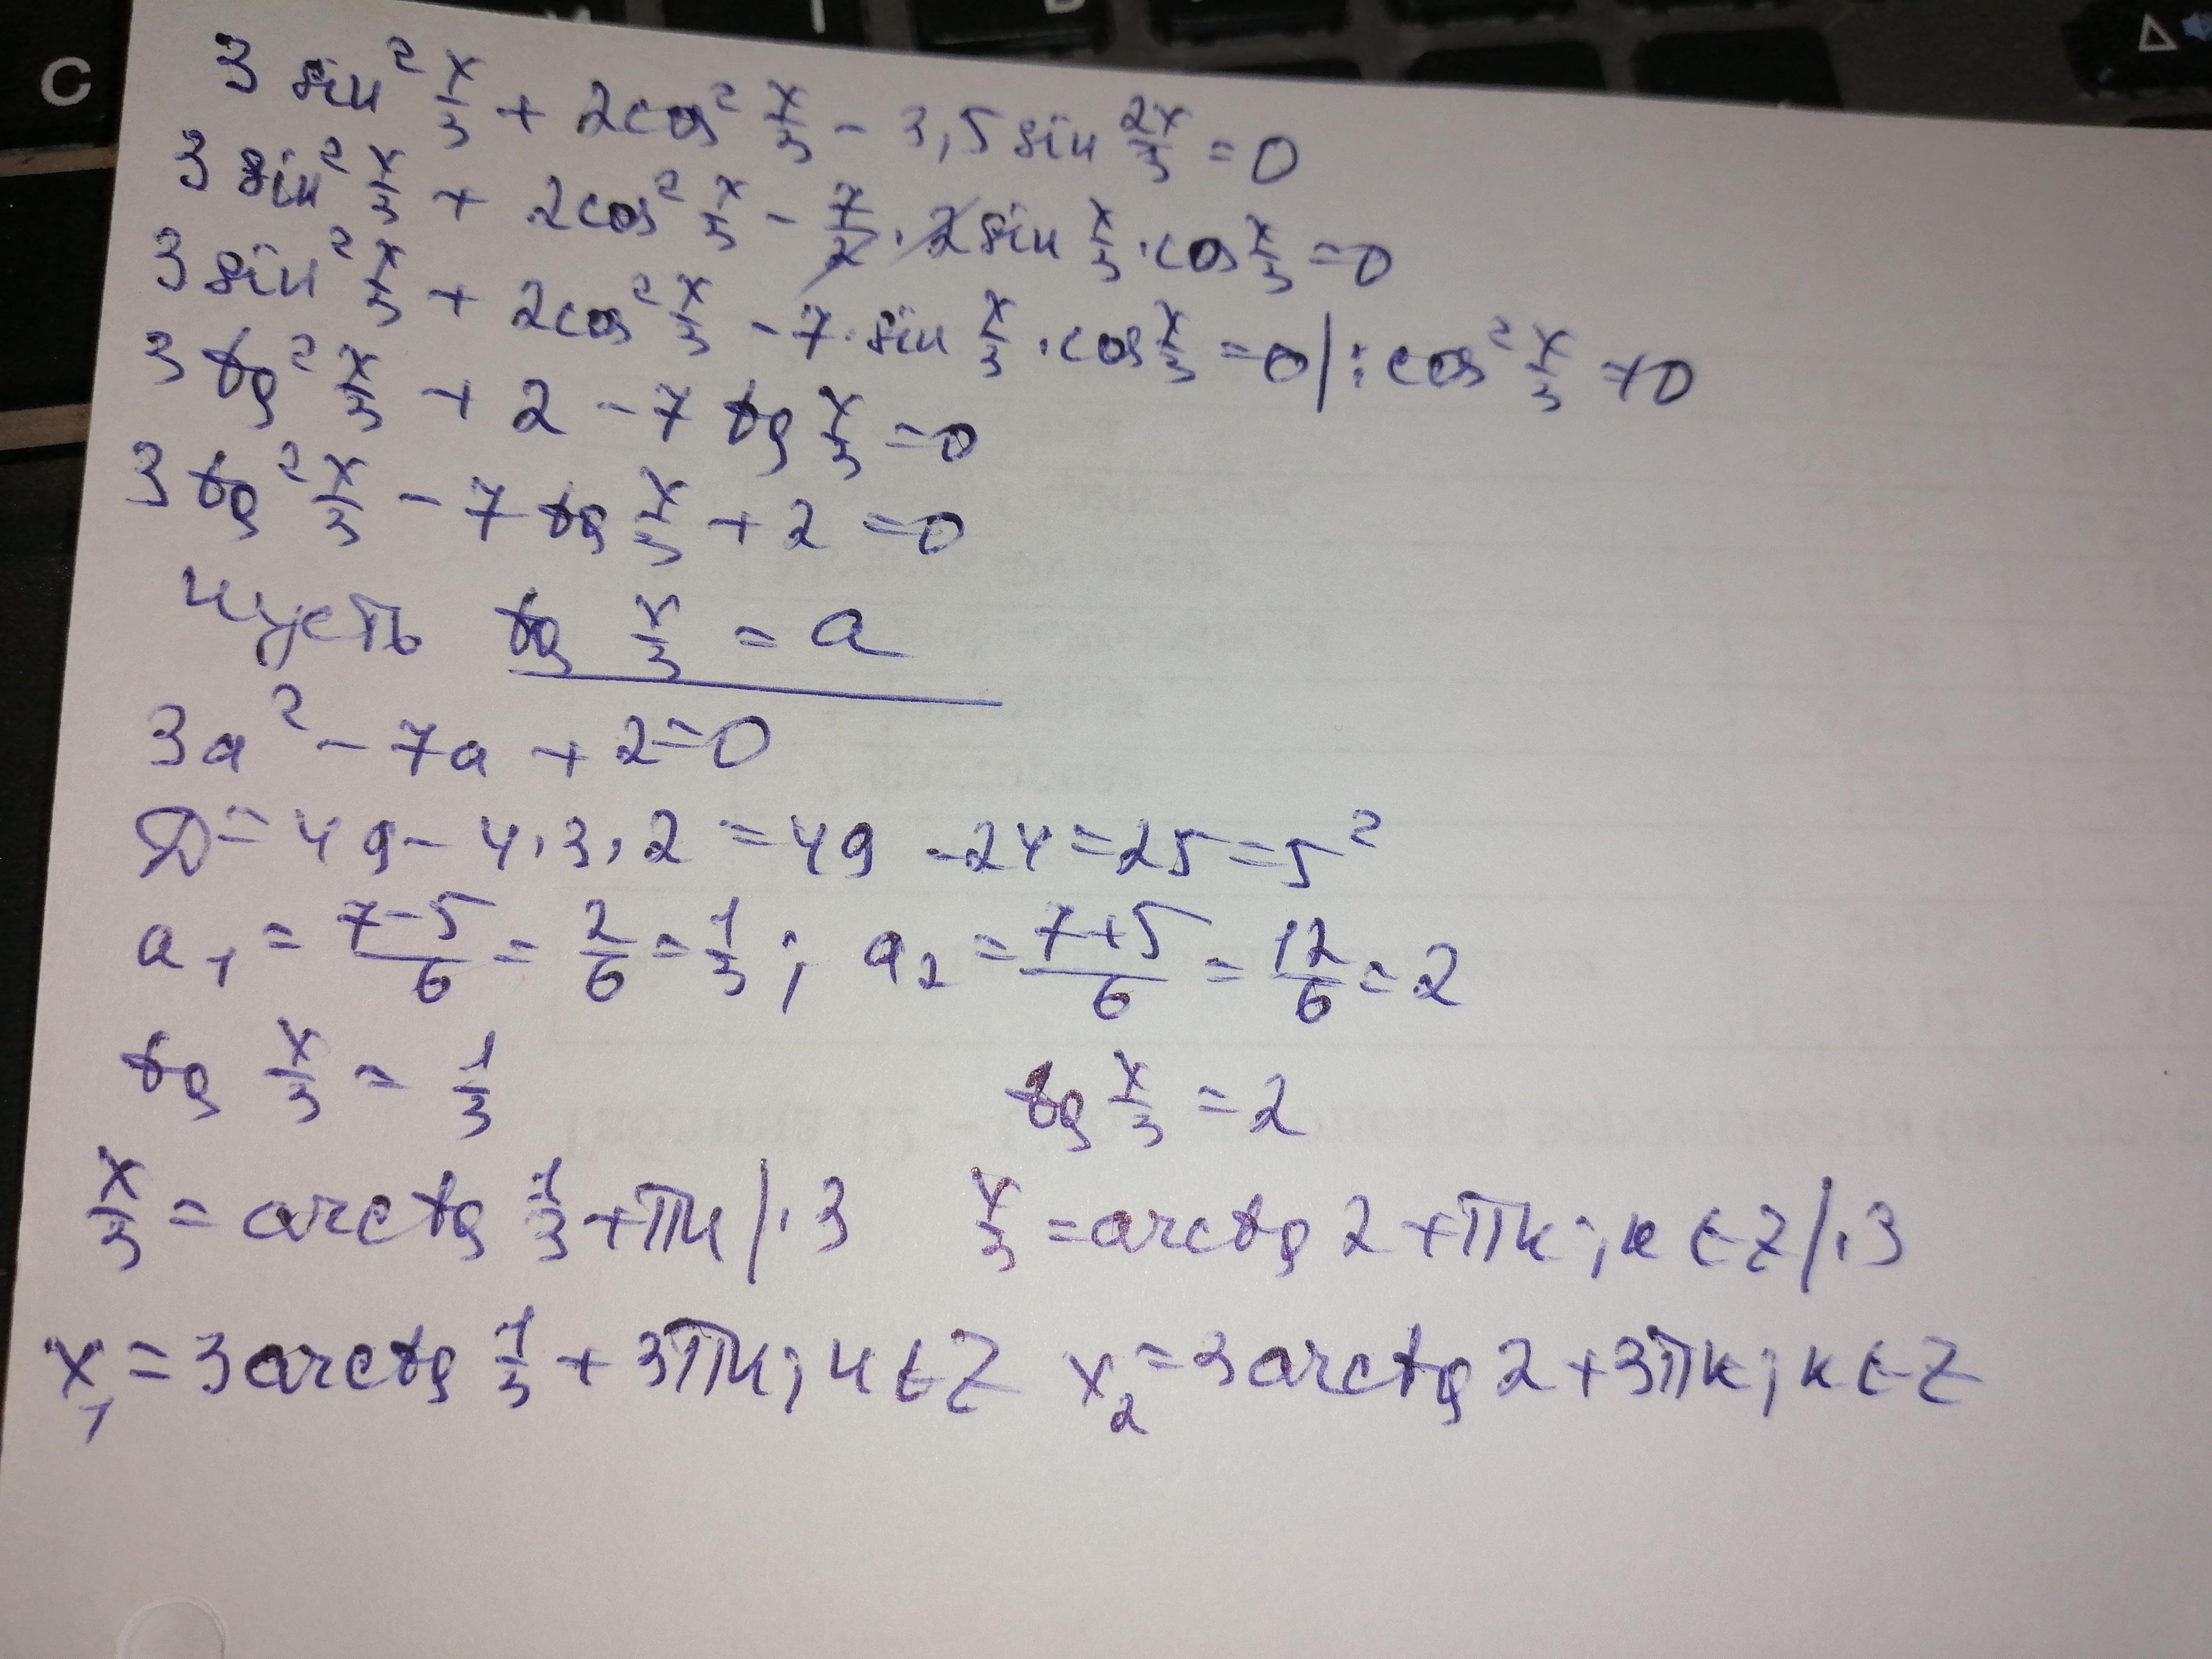 3 sin² x/3 + 2cos² x/3 - 3,5 sin 2x/3 = 0
3 sin² x/3 + 2cos² x/3 - 7/2 · 2 sin x/3 · cos x/3 = 0
3 sin² x/3 + 2cos² x/3 - 7 · sin x/3 · cos x/3 = 0 | : cos² x/3 ≠ 0
3 tg² x/3 + 2 - 7 tg x/3 = 0
3 tg² x/3 - 7 tg x/3 + 2 = 0
Пусть tg x/3 = a
3a² - 7a + 2 = 0
D = 49 - 4·3·2 = 49 - 24 = 25 = 5²
a₁ = (7-5)/6 = 2/6 = 1/3; a₂ = (7+5)/6 = 12/6 = 2
tg x/3 = 1/3 tg x/3 = 2
x/3 = arctg 1/3 + πn | ·3 x/3 = arctg 2 + πk; k ∈ Z | ·3
x₁ = 3 arctg 1/3 + 3πn; n ∈ Z x₂ = 3 arctg 2 + 3πk; k ∈ Z